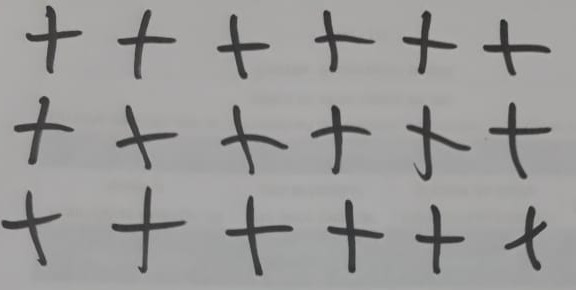 + + + + + +
+ + + + + +
+ + + + + +